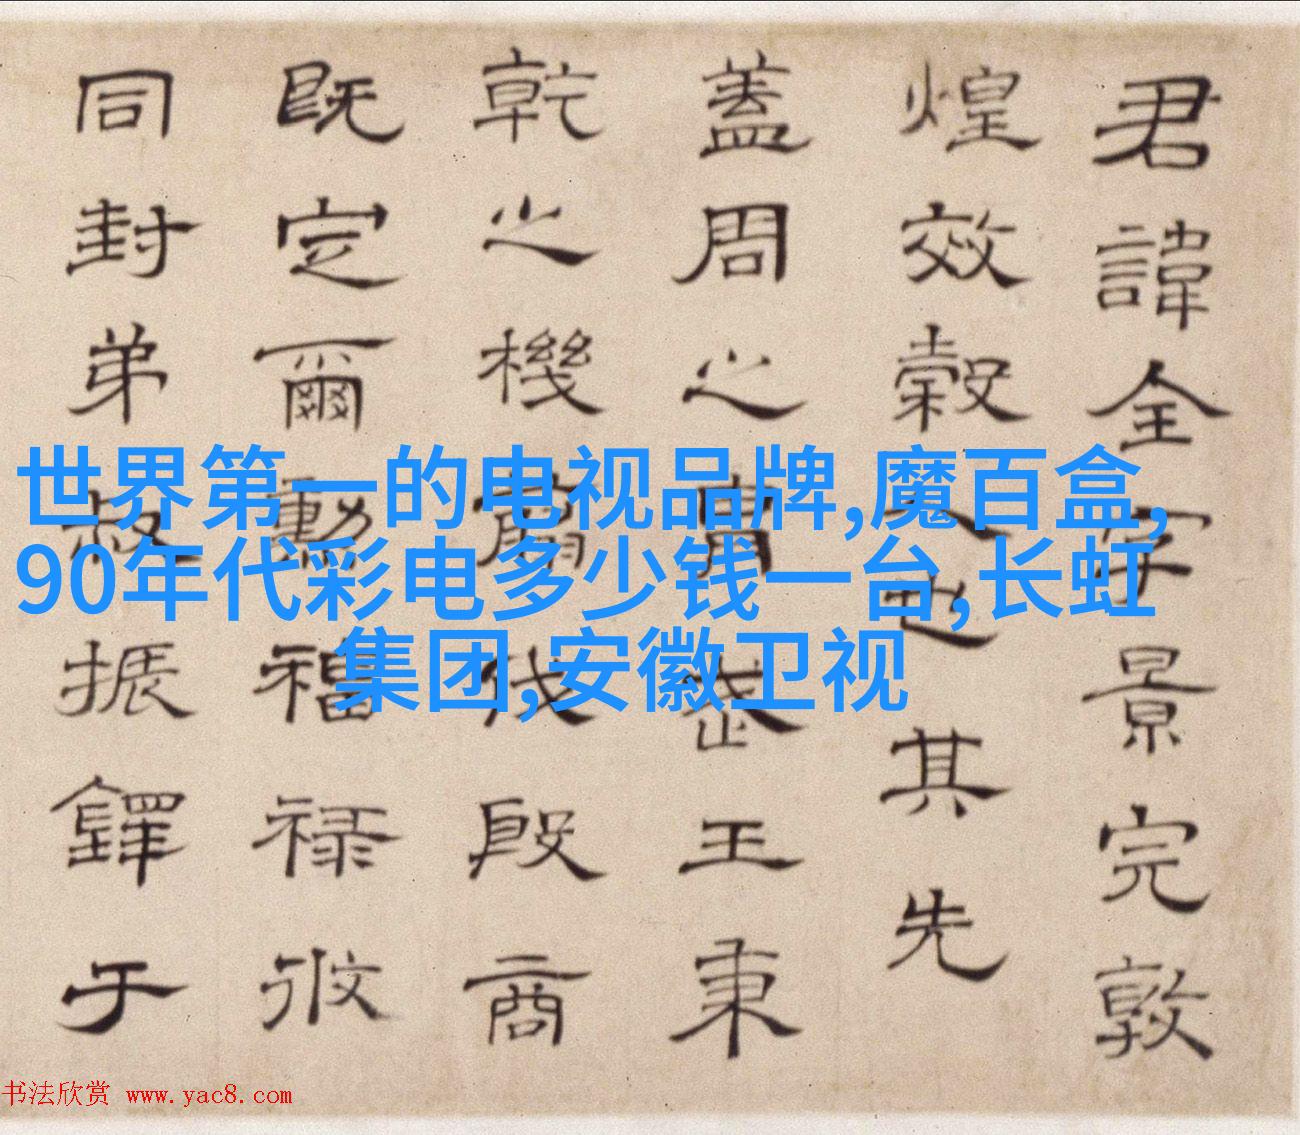 君諱全字景完敦
煌效穀人也其先
蓋周之胄武王秉
乾之機翦伐殷商
既定爾勳福祿攸
同封弟叔振鐸于
世界第一的电视品牌,魔百盒,
90年代彩电多少钱一台,长虹
集团,安徽卫视
书法欣赏 www.yac8.com